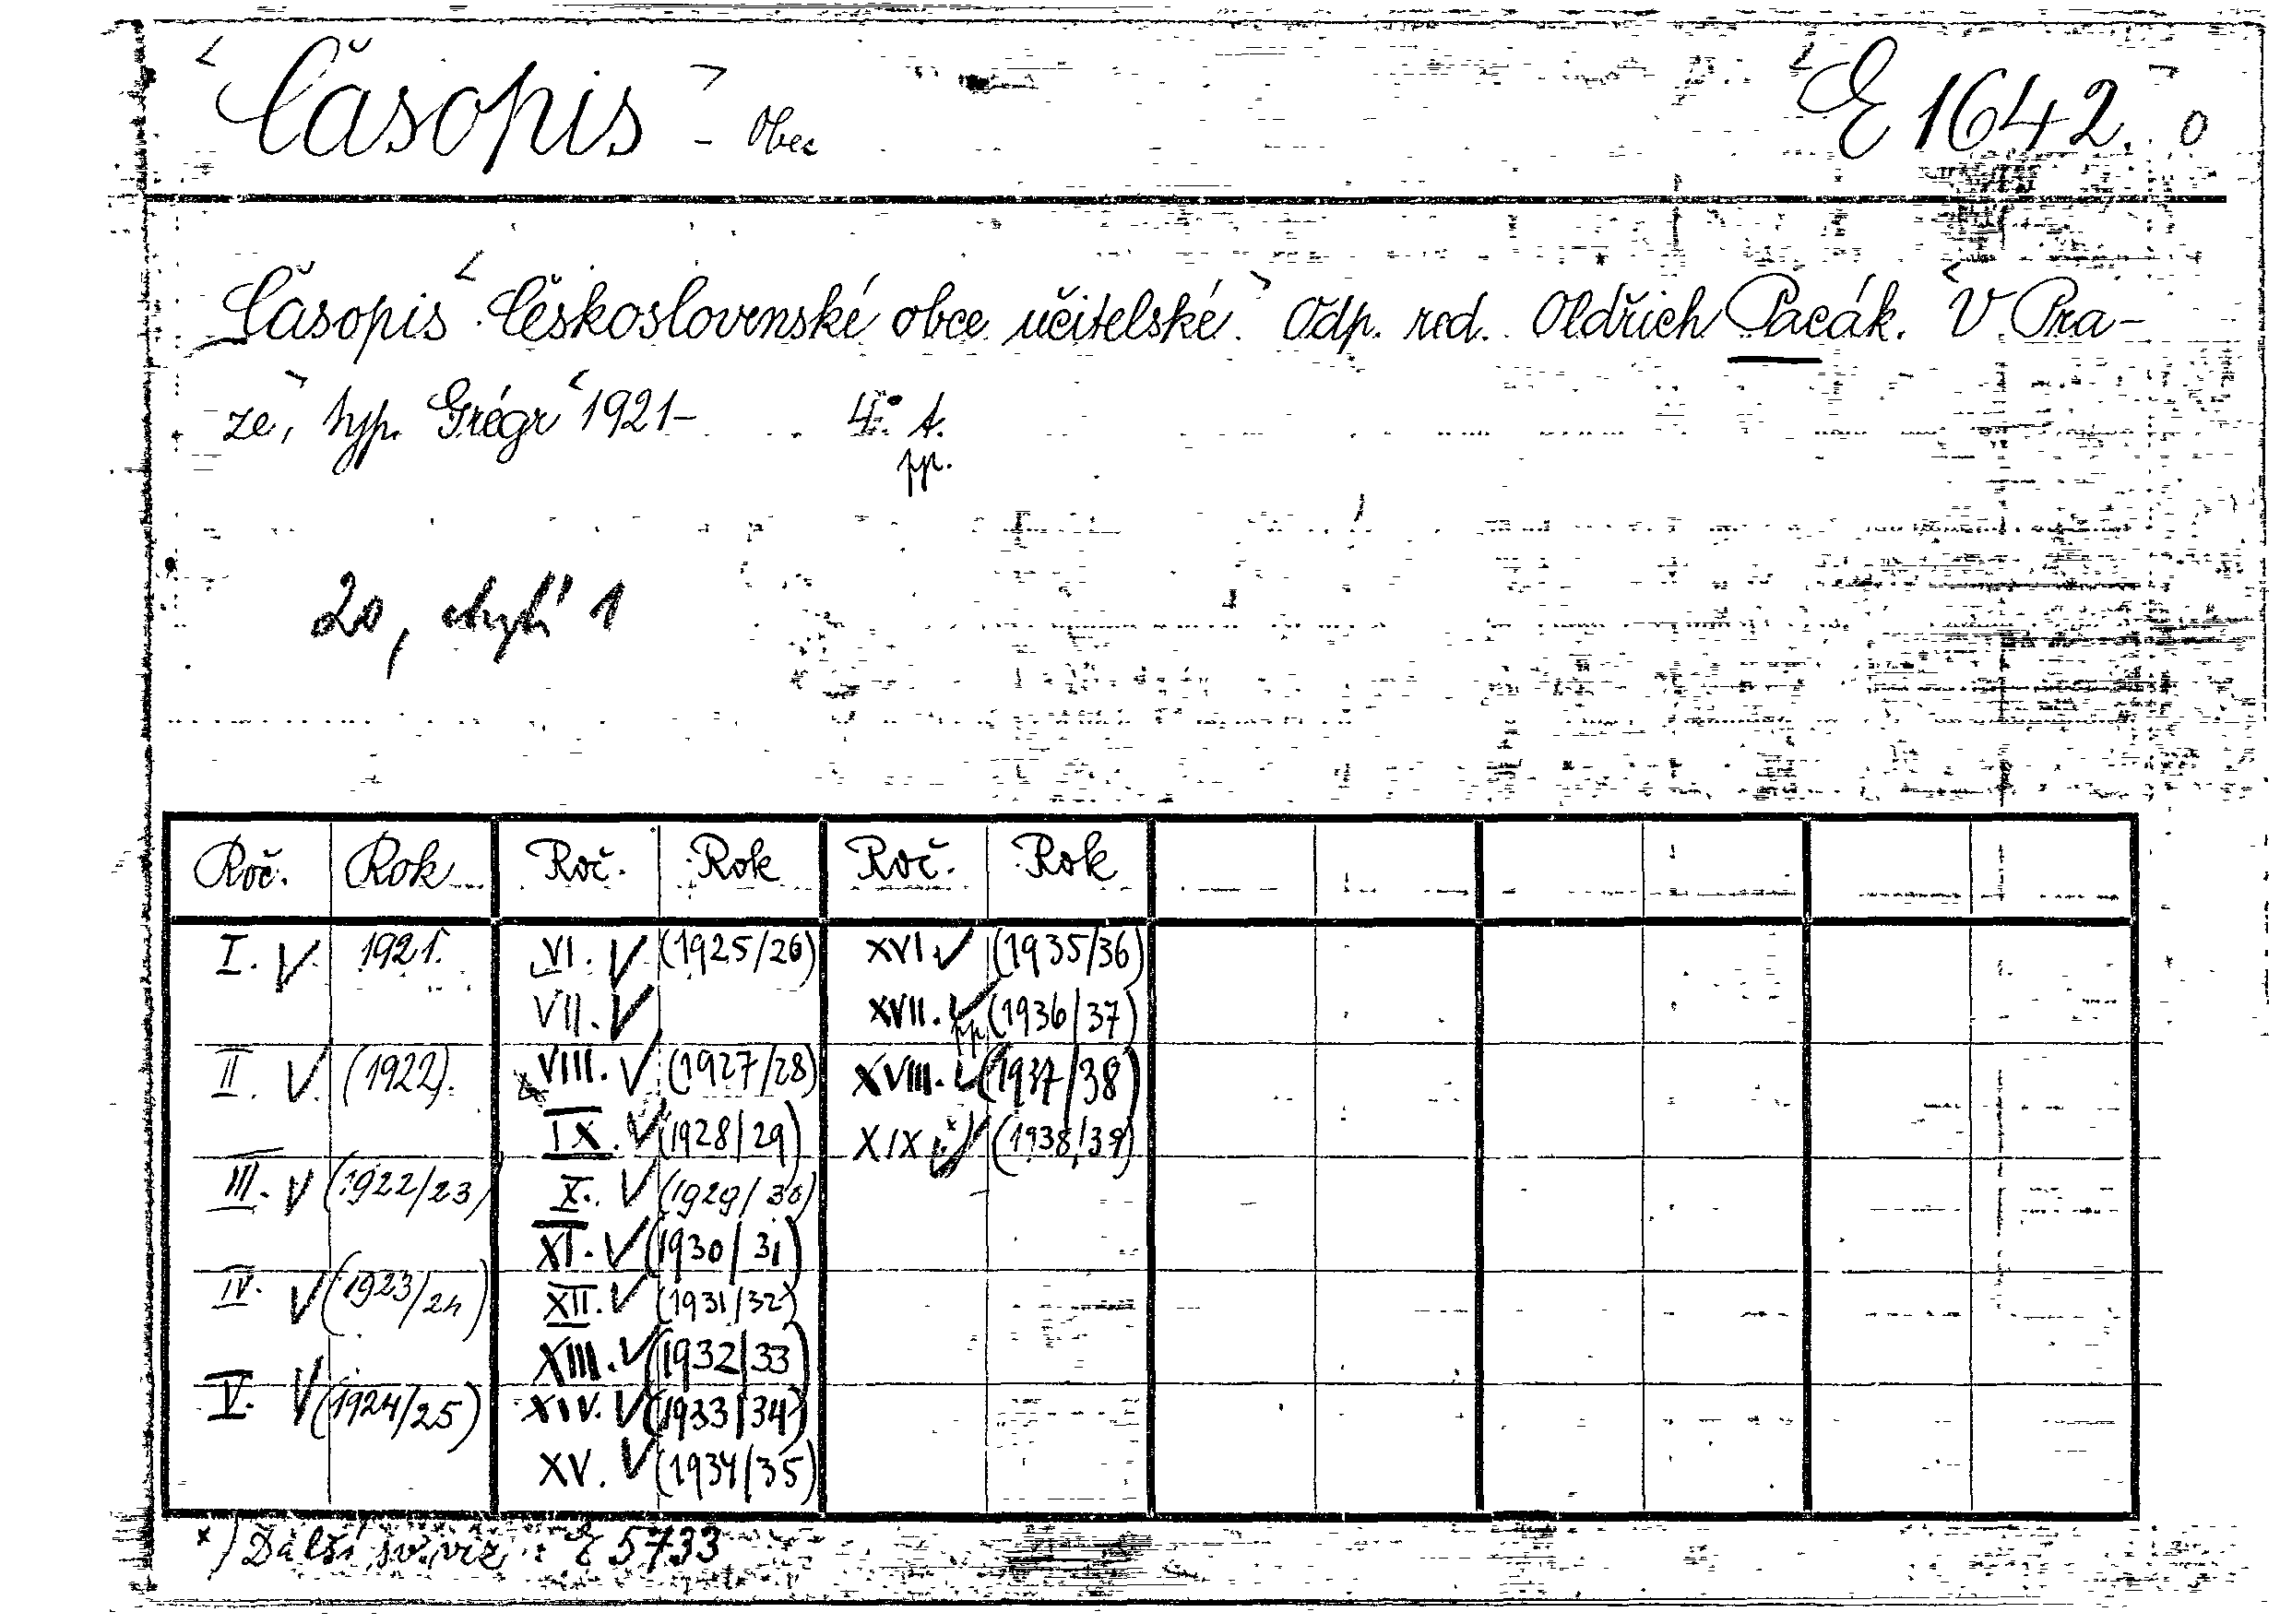 Časopis - Obec E 1642. o
Časopis Československé obce učitelské. Odp. red. Oldřich Pacák. V Pra-
ze, typ. Grégr 1921- 4° t.
pp.
20, chybí 1
Roč. Rok Roč. Rok Roč. Rok
I. V 1921. VI. V (1925/26) XVI. V (1935/36)
VII. V XVII. V pp (1936/37)
II. V. (1922). VIII. V (1927/28) XVIII. V (1937/38)
IX. V (1928/29) XIX V (1938/39)
III. V (1922/23) X. V (1929/30)
XI. V (1930/31)
IV. V (1923/24) XII. V (1931/32)
XIII. V (1932/33)
V. V (1924/25) XIV. V (1933/34)
XV. V (1934/35)
x) Další sv. viz : E 5733